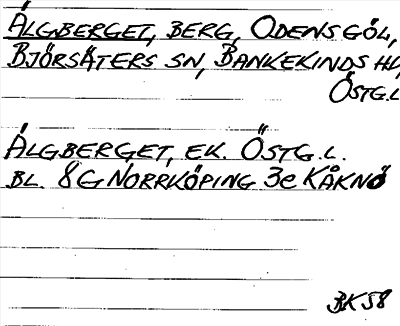 ÄLGBERGET, BERG, ODENSGÖL,
BJÖRSÄTERS SN, BANKEKINDS HD,
ÖSTG.L
ÄLGBERGET, EK. ÖSTG.L.
BL. 8G NORRKÖPING 3e KÅKNÖ
BK58